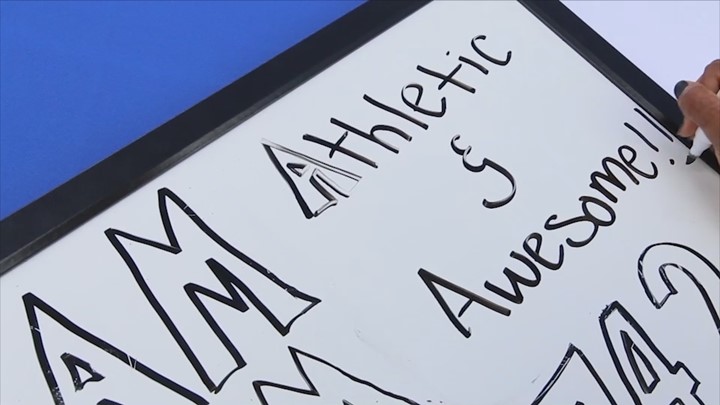 Athletic
&
Awesome!!
AM